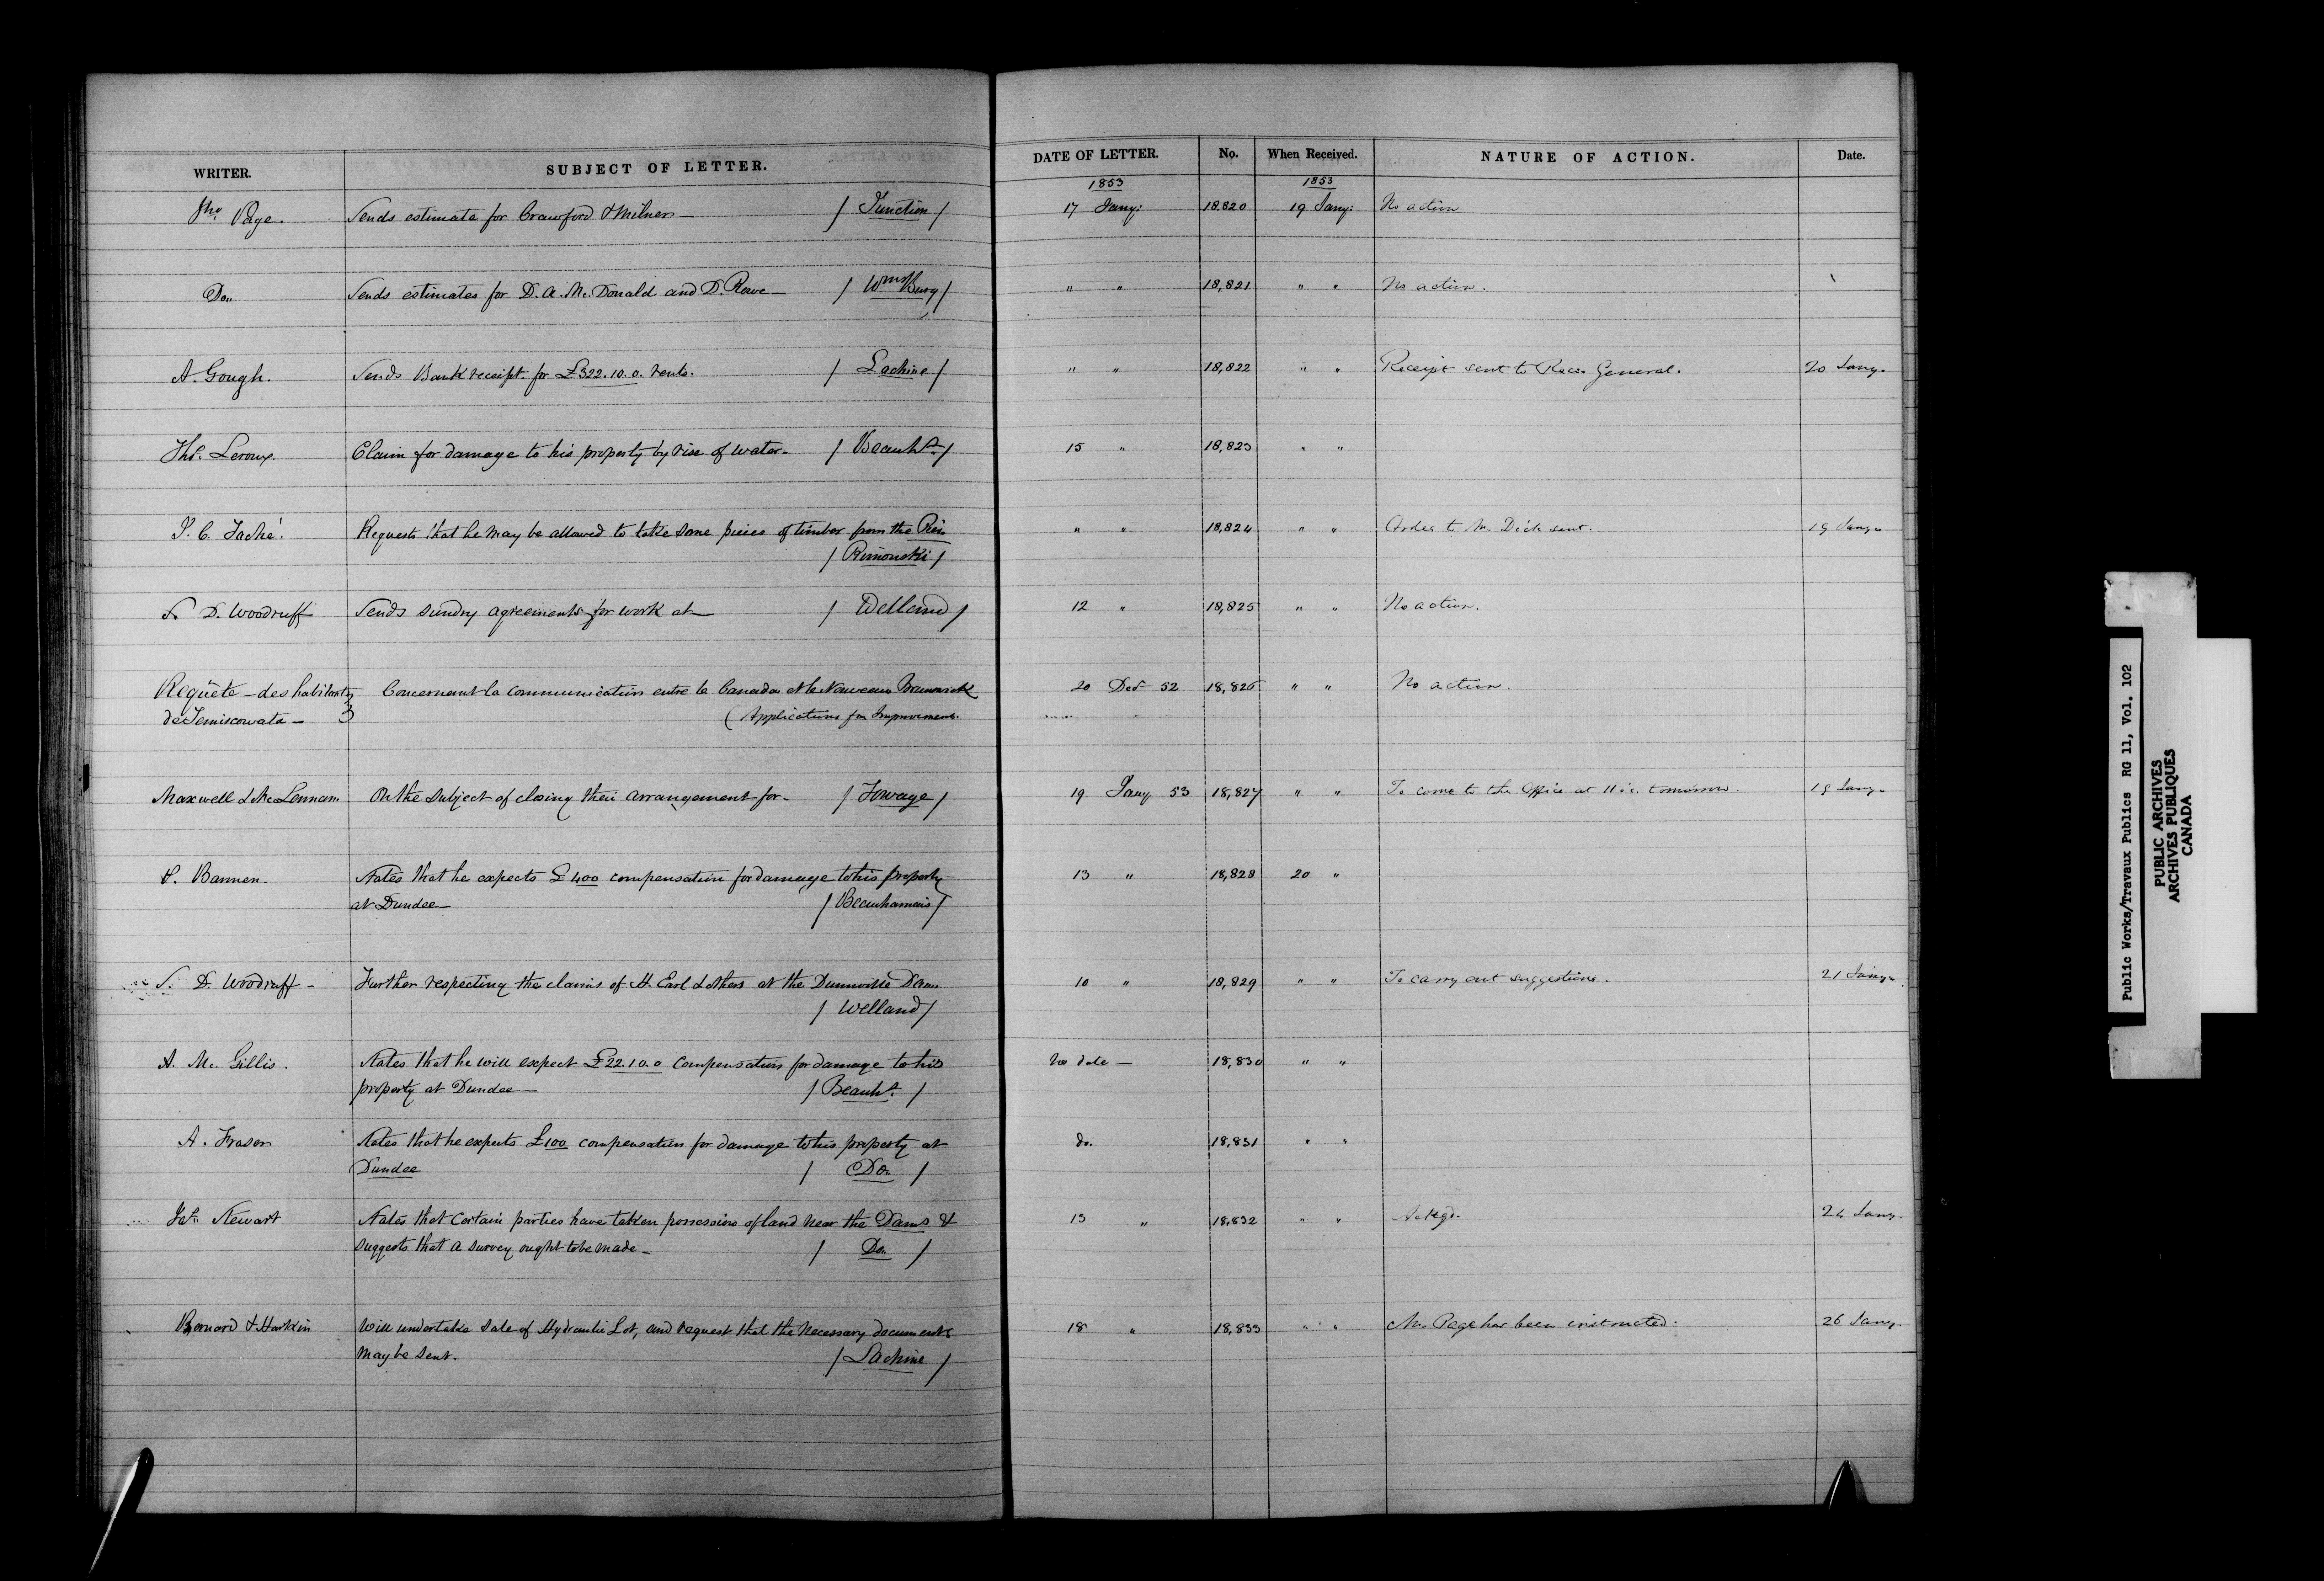 WRITER. SUBJECT OF LETTER. DATE OF LETTER. No. When Received. NATURE OF ACTION. Date.
1853 1853
Jno Page. Sends estimate for Crawford & Milner — / Junction / 17 Jany: 18820 19 Jany: No action
Do. Sends estimates for D. A. McDonald and D. Rowe — / WmsBurg / " " 18,821 " " No action.
A. Gough. Sends Bank receipt for £322.10.0. rents. / Lachine / " " 18,822 " " Receipt sent to Recr. General. 20 Jany.
Ths. Leroux. Claim for damage to his property by rise of water. / Beauhs. / 15 " 18,823 " "
J. C. Taché. Requests that he may be allowed to take some pieces of timber from the Pier " " 18,824 " " Order to Mr. Dick sent. 19 Jany.
/ Rimouski /
S. D. Woodruff Sends sundry agreements for work at — / Welland / 12 " 18,825 " " No action.
Requête — des habitants Concernant la communication entre le Canada et le Nouveau Brunswick 20 Decr 52 18,826 " " No action.
de Temiscouata — ( Applications for Improvement.
Maxwell & McLennan On the subject of closing their arrangement for — / Towage / 19 Jany 53 18,827 " " To come to the Office at 11 tomorrow. 19 Jany.
P. Bannen. States that he expects £400 compensation for damage to his property 13 " 18,828 20 "
at Dundee — / Beauharnois /
S. D. Woodruff — Further respecting the claims of H. Earl & others at the Dunnville Dam. 10 " 18,829 " " To carry out suggestions. 21 Jany.
/ Welland /
A. Mc. Gillis. States that he will expect £22.10.0 compensation for damage to his No date — 18,830 " "
property at Dundee — / Beauhs. /
A. Fraser States that he expects £100 compensation for damage to his property at do. 18,831 " "
Dundee / Do. /
Jas. Stewart States that certain parties have taken possession of land near the Dams & 13 " 18,832 " " Ackgd. 24 Jany.
suggests that a survey ought to be made — / Do. /
Bernard & Harkin Will undertake sale of Hydraulic Lot, and request that the necessary documents 18 " 18,833 " " Mr. Page has been instructed. 26 Jany.
may be sent. / Lachine /
Public Works/Travaux Publics RG 11, Vol. 102
PUBLIC ARCHIVES
ARCHIVES PUBLIQUES
CANADA